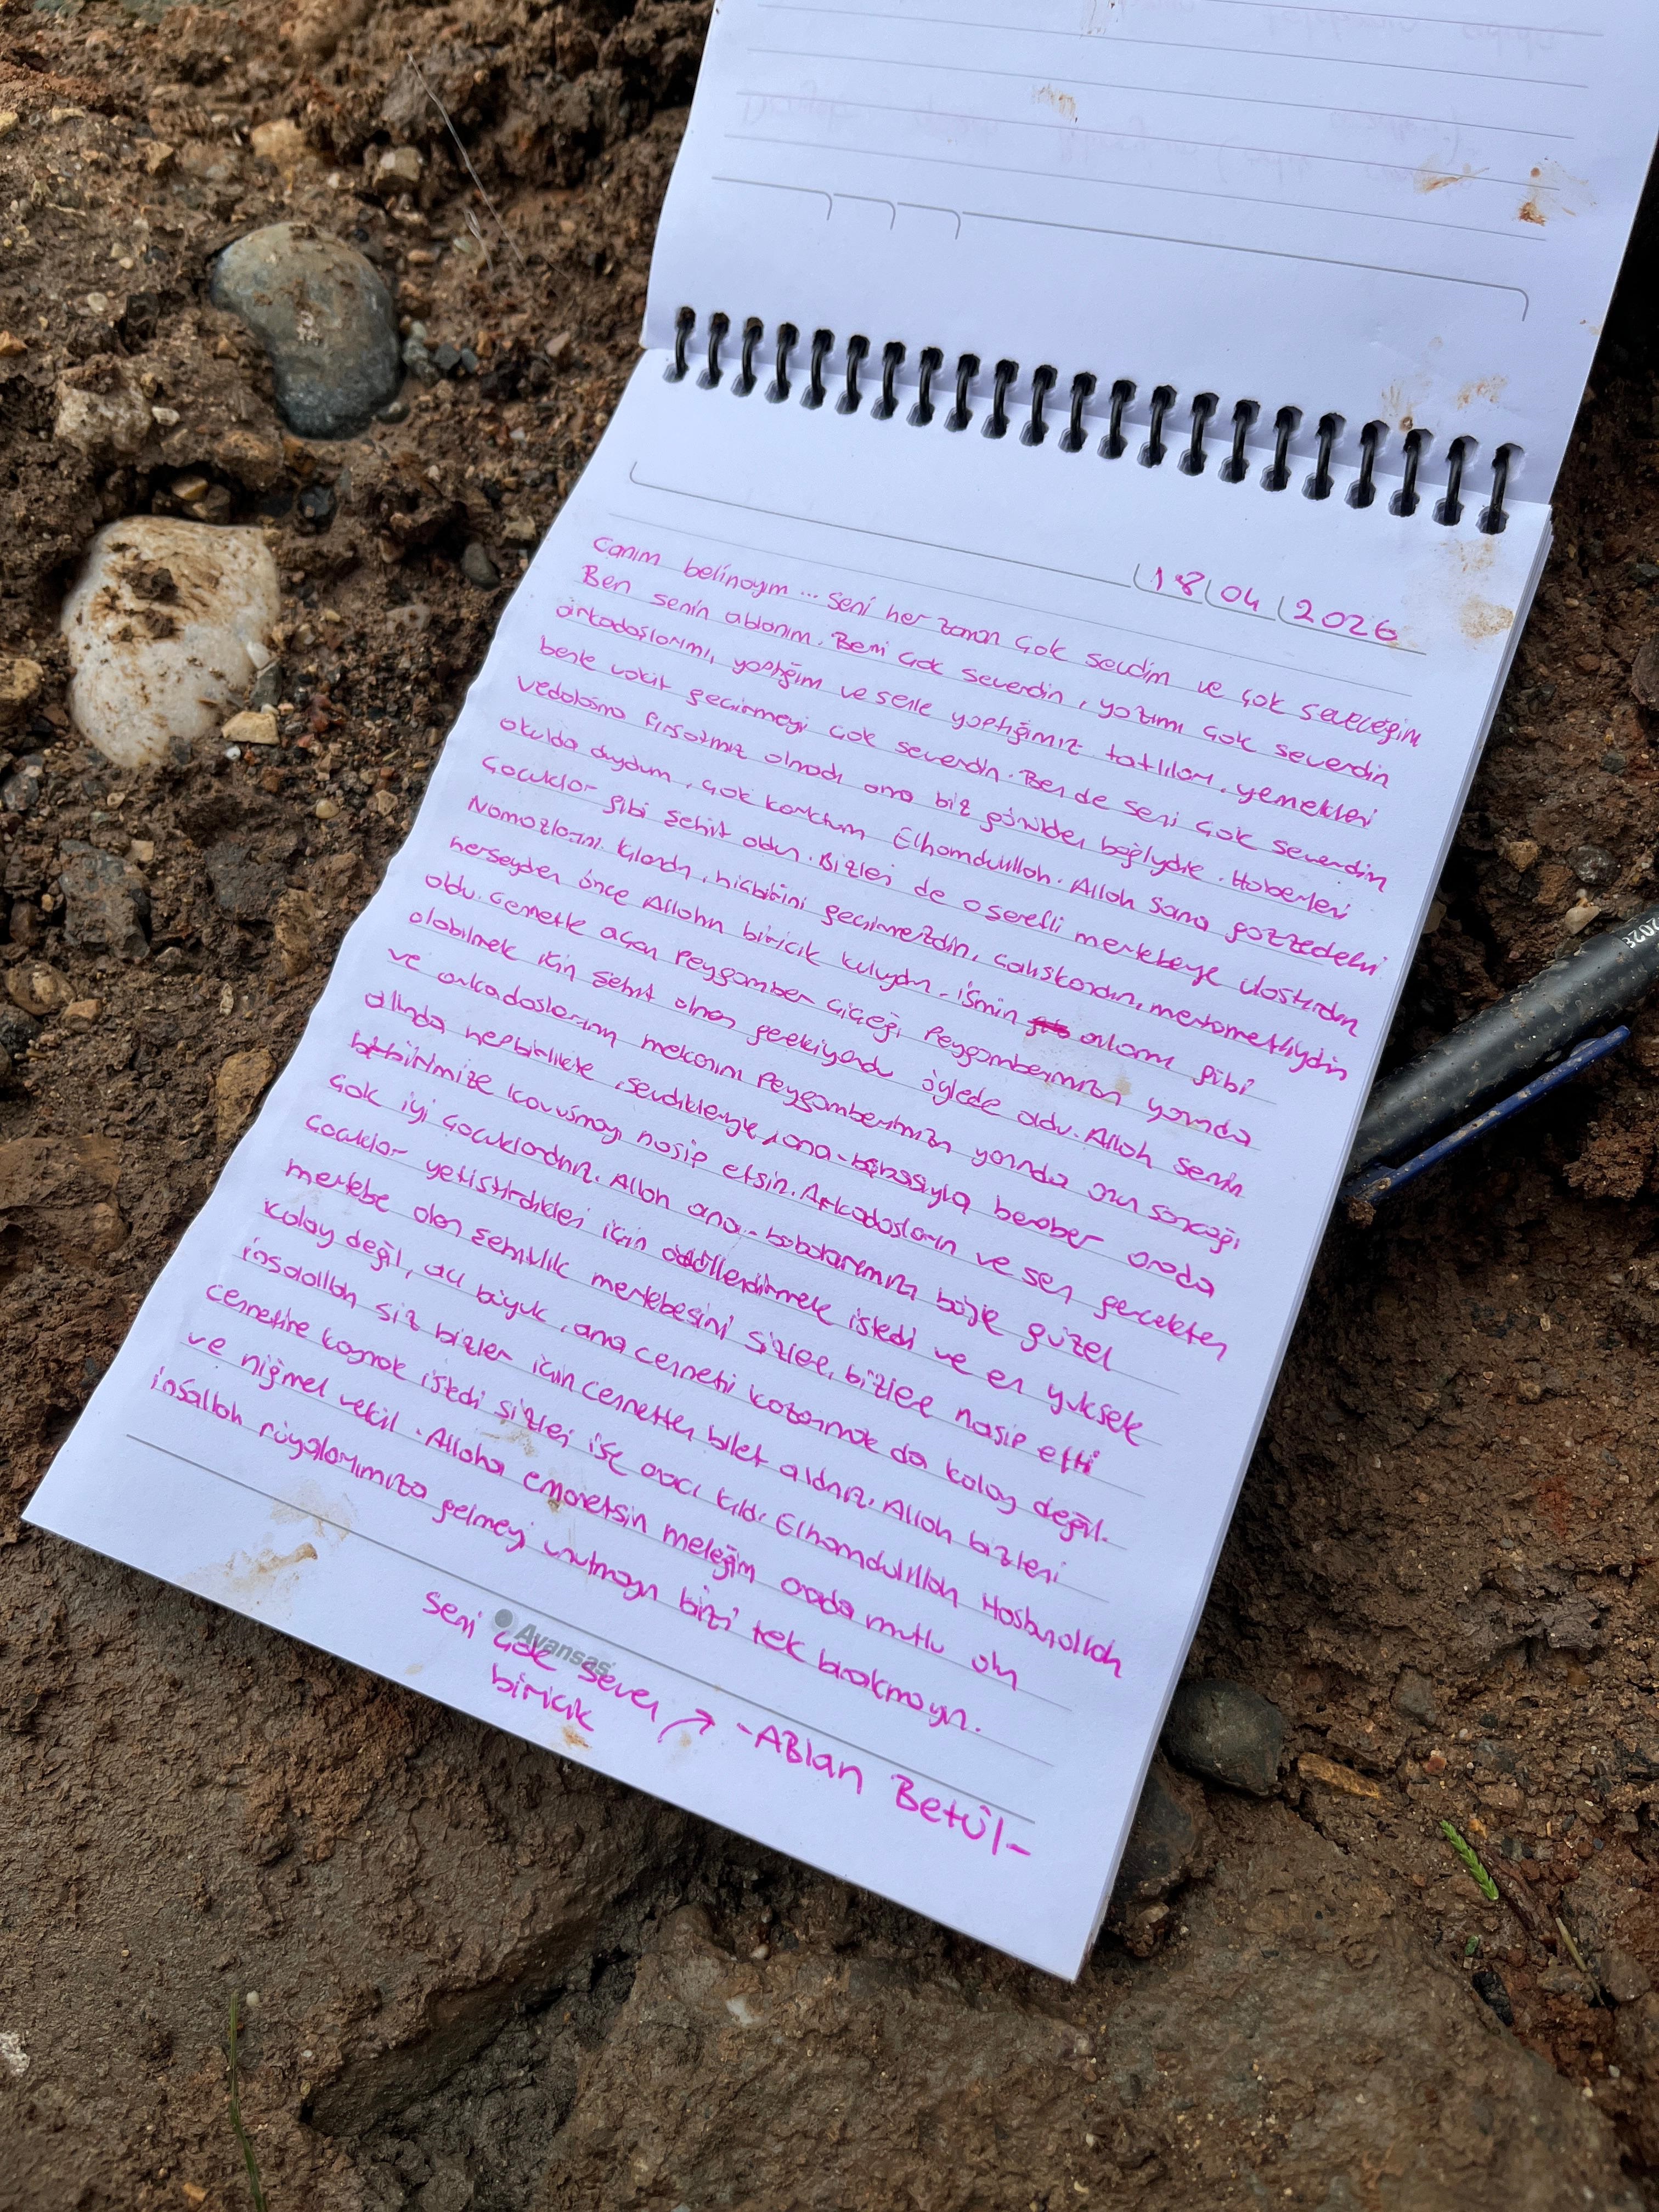 18 04 2026
Canım belinayım... Seni her zaman çok sevdim ve çok seveceğim
Ben senin ablanım. Beni çok severdin, yazımı çok severdin
arkadaşlarımı, yaptığım ve senle yaptığımız tatlıları, yemekleri
benle vakit geçirmeyi çok severdin. Ben de seni çok severdim
vedalaşma fırsatımız olmadı ama biz gönülden bağlıydık. Haberleri
okulda duydum, çok korktum Elhamdulillah. Allah sana gazzedeki
çocuklar gibi şehit oldun. Bizleri de o şerefli mertebeye ulaştırdın
Namazlarını kılardın, hiçbirini geçirmezdin, çalışkandın, merhametliydin
herşeyden önce Allahın biricik kuluydun. ismin anlamı gibi
oldu. Cennette açan Peygamber çiçeği Peygamberimizin yanında
olabilmek için şehit olman gerekiyordu öylede oldu. Allah senin
ve arkadaşlarının mekanını Peygamberimizin yanında onun sancağı
altında hepbirlikte, sevdikleriyle, ana-babasıyla beraber orada
birbirimize kavuşmayı nasip etsin. Arkadaşların ve sen gerçekten
çok iyi çocuklardınız. Allah ana-babalarımızın böyle güzel
çocuklar yetiştirdikleri için ödüllendirmek istedi ve en yüksek
mertebe olan şehitlik mertebesini sizlere, bizlere nasip etti
kolay değil, acı büyük, ama cenneti kazanmak da kolay değil.
inşalallah siz bizler için cennetten bilet aldınız. Allah bizleri
cennetine koymak istedi sizleri ise aracı kıldı Elhamdulillah Hasbunallah
ve niğmel vekil. Allaha emanetsin meleğim orada mutlu ol
inşallah rüyalarımıza gelmeyi unutmayın bizi tek bırakmayın.
Avansas
Seni çok seven → -ABlan Betül-
biricik